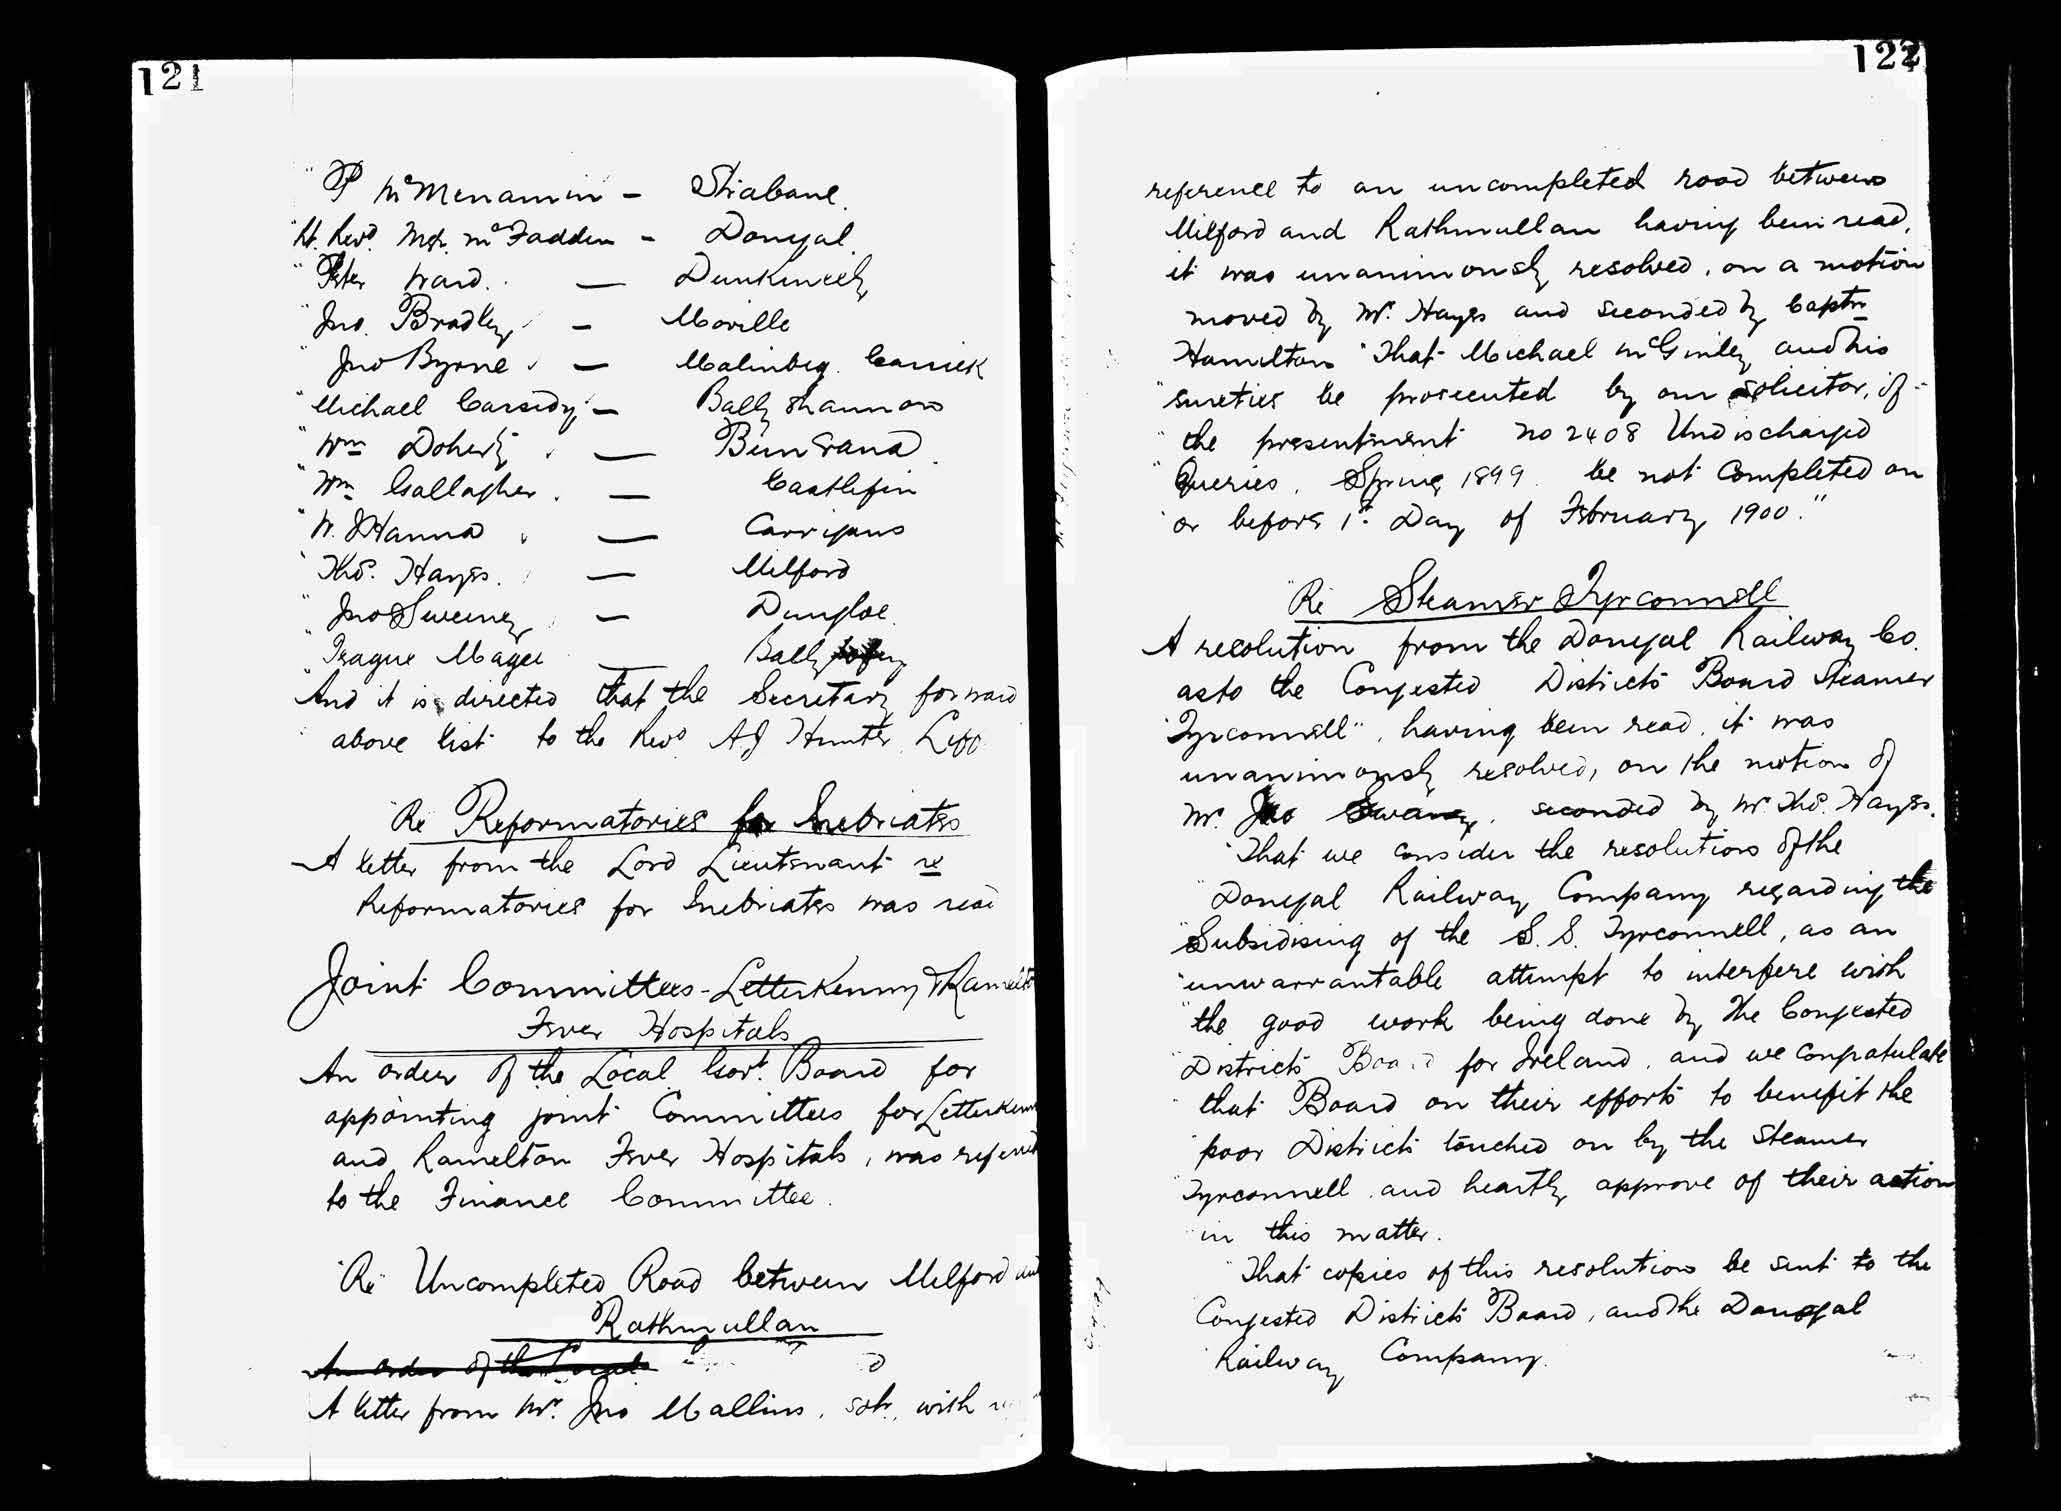 121
" P McMenamin - Strabane.
"Rt. Revd. Mgr. McFadden - Donegal.
" Peter Ward. — Dunkineely
" Jno. Bradley, - Moville
" Jno Byrne — Malinbeg. Carrick
" Michael Cassidy - Ballyshannon
" Wm Doherty — Buncrana
" Wm Gallagher. — Castlefin
" W. J Hanna — Carrigans
" Thos. Hayes. — Milford
" Jno Sweeney — Dungloe.
" Teague Magee — Bally
And it is directed that the Secretary forward
above list to the Revd A J Hunter
"Re Reformatories for Inebriates
A letter from the Lord Lieutenant re
Reformatories for Inebriates was read
Joint Committees - Letterkenny & Ramelto
Fever Hospitals
An order of the Local Govt. Board for
appointing joint Committees for Letterkenn
and Ramelton Fever Hospitals, was referred
to the Finance Committee.
"Re" Uncompleted Road between Milford and
Rathmullan
An order of the Local
A letter from Mr. Jno Mallins, solr, with
122
reference to an uncompleted road between
Milford and Rathmullan having been read,
it was unanimously resolved, on a motion
moved by Mr. Hayes and seconded by Captn
Hamilton "That Michael McGinley and his
"sureties be prosecuted by our solicitor, if
"the presentment No 2408 Undischarged
"Queries. Spring 1899. be not completed on
"or before 1st. Day of February 1900."
"Re Steamer Tyrconnell
A resolution from the Donegal Railway Co.
as to the Congested Districts Board Steamer
"Tyrconnell", having been read, it was
unanimously resolved, on the motion of
Mr. Jno Sweeney, seconded by Mr. Thos. Hayes.
"That we consider the resolution of the
"Donegal Railway Company regarding the
"Subsidising of the S. S. Tyrconnell, as an
"unwarrantable attempt to interfere with
"the good work being done by the Congested
"Districts Board for Ireland, and we congratulate
"that Board on their efforts to benefit the
"poor Districts touched on by the Steamer
"Tyrconnell and heartly approve of their action
"in this matter.
"That copies of this resolution be sent to the
Congested Districts Board, and the Donegal
Railway Company.